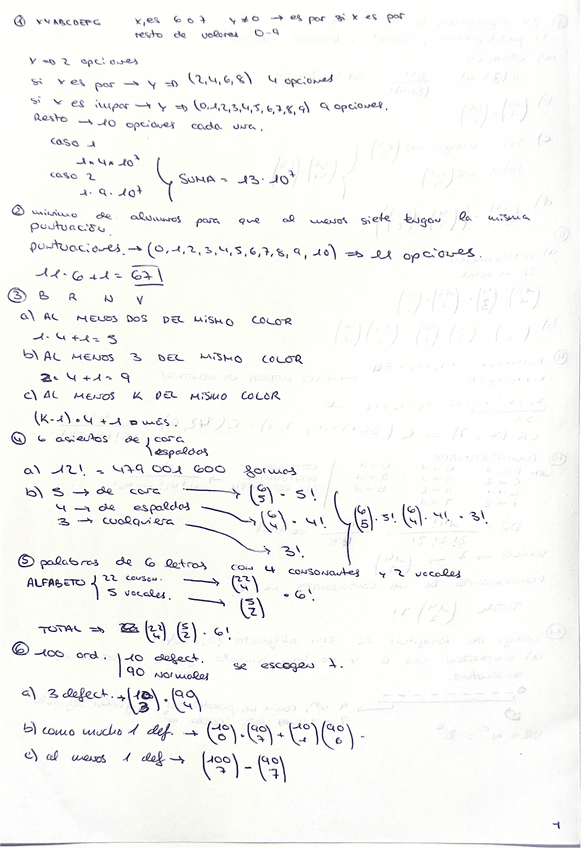 ① XYABCDEFG X, es 6 o 7 Y≠0 → es par si x es par
resto de valores 0-9
X ⇒ 2 opciones
si x es par → Y ⇒ (2,4,6,8) 4 opciones
si x es impar → Y ⇒ (0,1,2,3,4,5,6,7,8,9) 9 opciones.
Resto → 10 opciones cada una.
caso 1
1·4·10⁷
caso 2
1·9·10⁷
SUMA = 13·10⁷
② minimo de alumnos para que al menos siete tengan la misma
puntuación.
puntuaciones → (0,1,2,3,4,5,6,7,8,9,10) ⇒ 11 opciones.
11·6+1 = 67
③ B R N V
a) AL MENOS DOS DEL MISMO COLOR
1·4+1=5
b) AL MENOS 3 DEL MISMO COLOR
2·4+1=9
c) AL MENOS K DEL MISMO COLOR
(K-1)·4+1 o más.
④ 6 asientos de { cara
espaldas
a) 12! = 479 001 600 formas
b) 5 → de cara → (6 5)·5!
4 → de espaldas → (6 4)·4!
3 → cualquiera → 3!
(6 5)·5! (6 4)·4!·3!
⑤ palabras de 6 letras con 4 consonantes y 2 vocales
ALFABETO { 22 conson. → (22 4)
5 vocales. → (5 2) · 6!
TOTAL ⇒ (22 4) (5 2)·6!
⑥ 100 ord. | 10 defect. se escogen 7.
90 normales
a) 3 defect. → (10 3)·(90 4)
b) como mucho 1 def. → (10 0)·(90 7)+(10 1)(90 6)
c) al menos 1 def → (100 7) - (90 7)